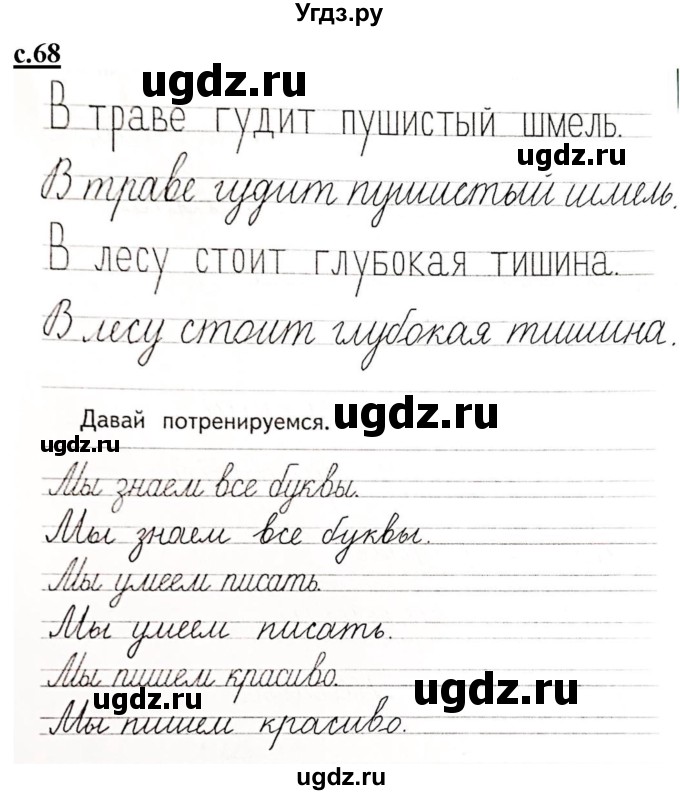 Угдз.ру
с.68
ugdz.ru
В траве гудит пушистый шмель.
ugdz.ru
В траве гудит пушистый шмель.
В лесу стоит глубокая тишина.
ugdz.ru
В лесу стоит глубокая тишина.
Давай потренируемся.
ugdz.ru
ugdz.ru
Мы знаем все буквы.
Мы знаем все буквы.
Мы умеем писать.
Мы умеем писать.
Мы пишем красиво.
ugdz.ru
ugdz.ru
Мы пишем красиво.
ugdz.ru